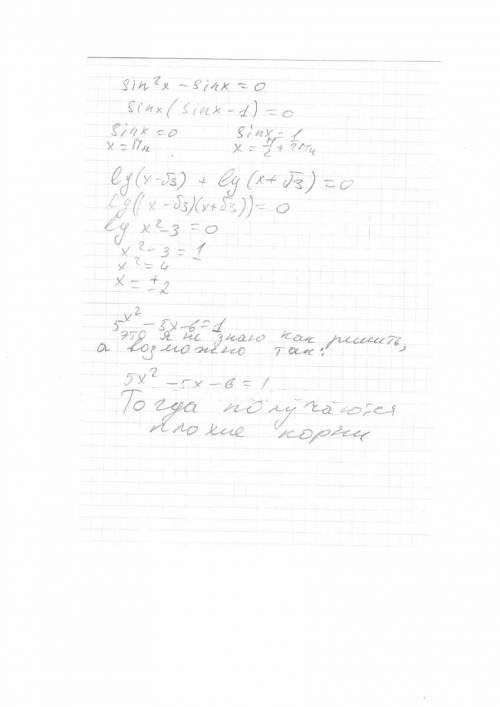 sin²x - sinx = 0
sinx(sinx - 1) = 0
sinx = 0 sinx = 1
x = πn x = π/2 + 2πn
lg(x-√3) + lg(x+√3) = 0
lg((x-√3)(x+√3)) = 0
lg x²-3 = 0
x²-3 = 1
x² = 4
x = ±2
5^x² - 5x-6 = 1
это я не знаю как решить,
а возможно так:
5x² - 5x - 6 = 1
Тогда получаются
плохие корни